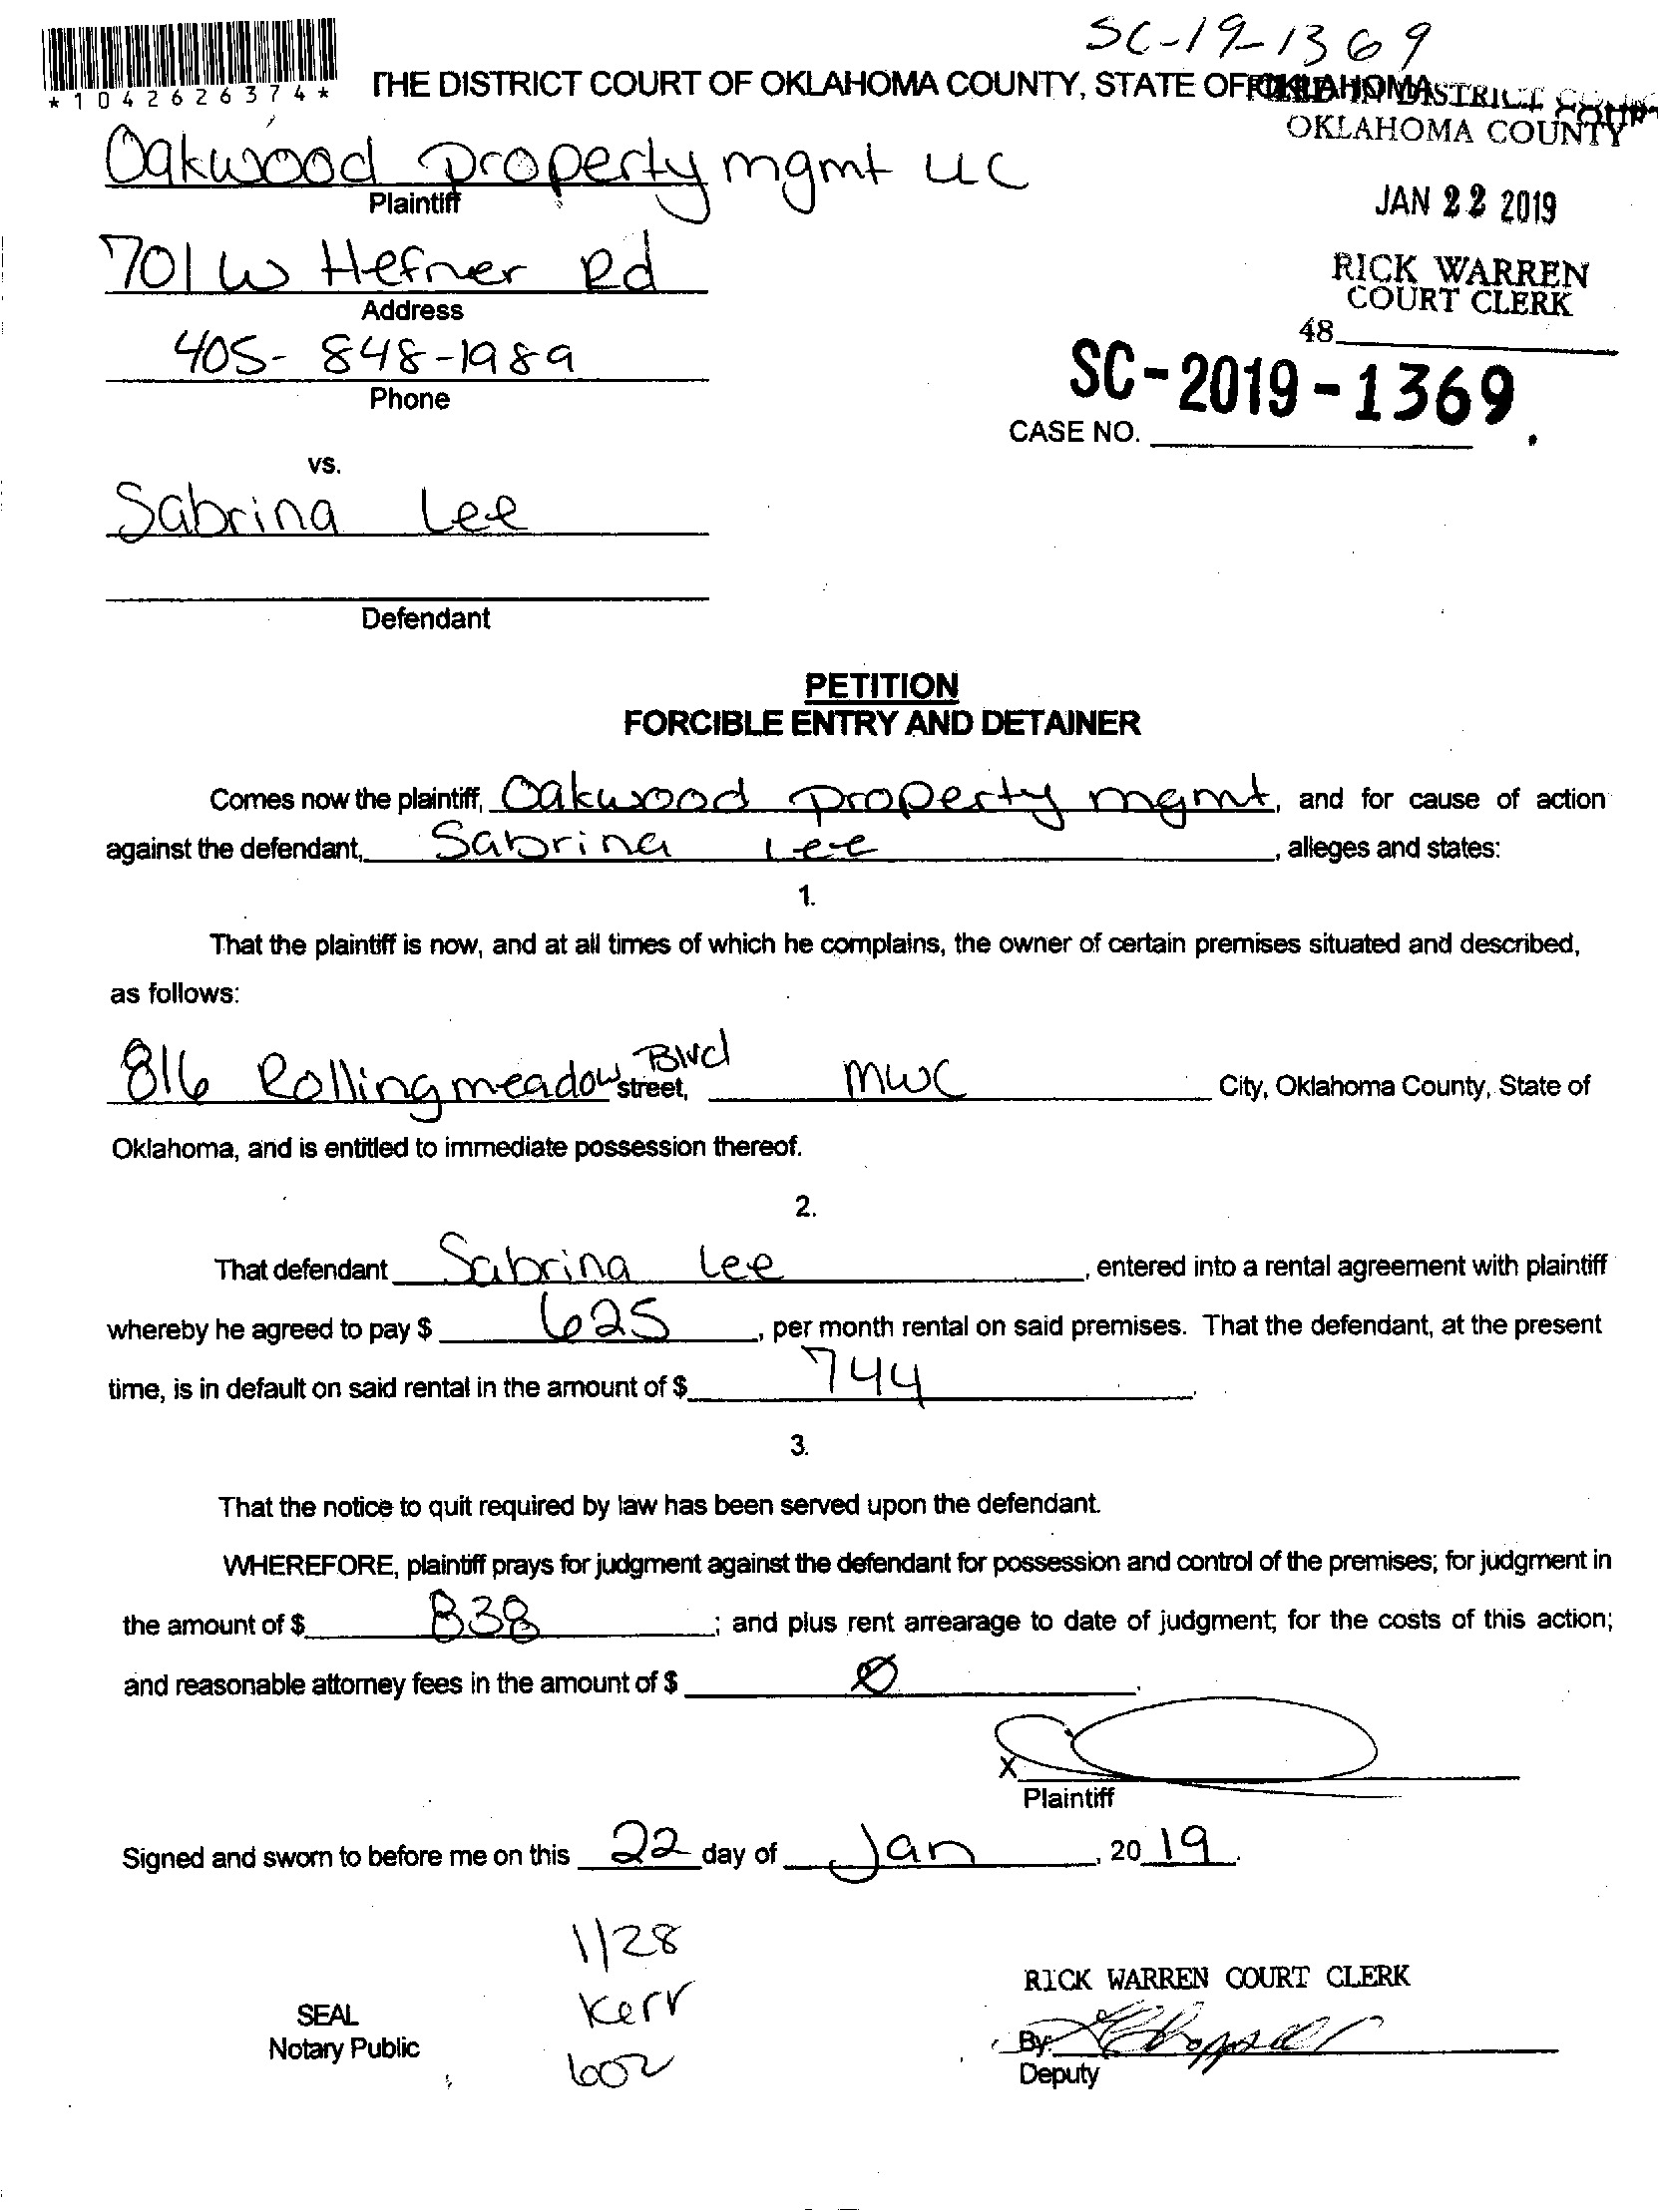 SC-19-1369
*1042626374*
THE DISTRICT COURT OF OKLAHOMA COUNTY, STATE OF OKLAHOMA
FILED IN DISTRICT COURT
OKLAHOMA COUNTY
Oakwood property mgmt LLC
Plaintiff
JAN 22 2019
701 W Hefner Rd
Address
RICK WARREN
COURT CLERK
405-848-1989
Phone
48
SC-2019-1369
CASE NO.
vs.
Sabrina Lee
Defendant
PETITION
FORCIBLE ENTRY AND DETAINER
Comes now the plaintiff, Oakwood property mgmt, and for cause of action
against the defendant, Sabrina Lee, alleges and states:
1.
That the plaintiff is now, and at all times of which he complains, the owner of certain premises situated and described,
as follows:
816 Rolling meadow Blvd street, MWC City, Oklahoma County, State of
Oklahoma, and is entitled to immediate possession thereof.
2.
That defendant Sabrina Lee, entered into a rental agreement with plaintiff
whereby he agreed to pay $ 625, per month rental on said premises. That the defendant, at the present
time, is in default on said rental in the amount of $ 744.
3.
That the notice to quit required by law has been served upon the defendant.
WHEREFORE, plaintiff prays for judgment against the defendant for possession and control of the premises; for judgment in
the amount of $ 838; and plus rent arrearage to date of judgment; for the costs of this action;
and reasonable attorney fees in the amount of $ Ø.
X
Plaintiff
Signed and sworn to before me on this 22 day of Jan, 2019.
1/28
Kerr
602
SEAL
Notary Public
RICK WARREN COURT CLERK
By:
Deputy